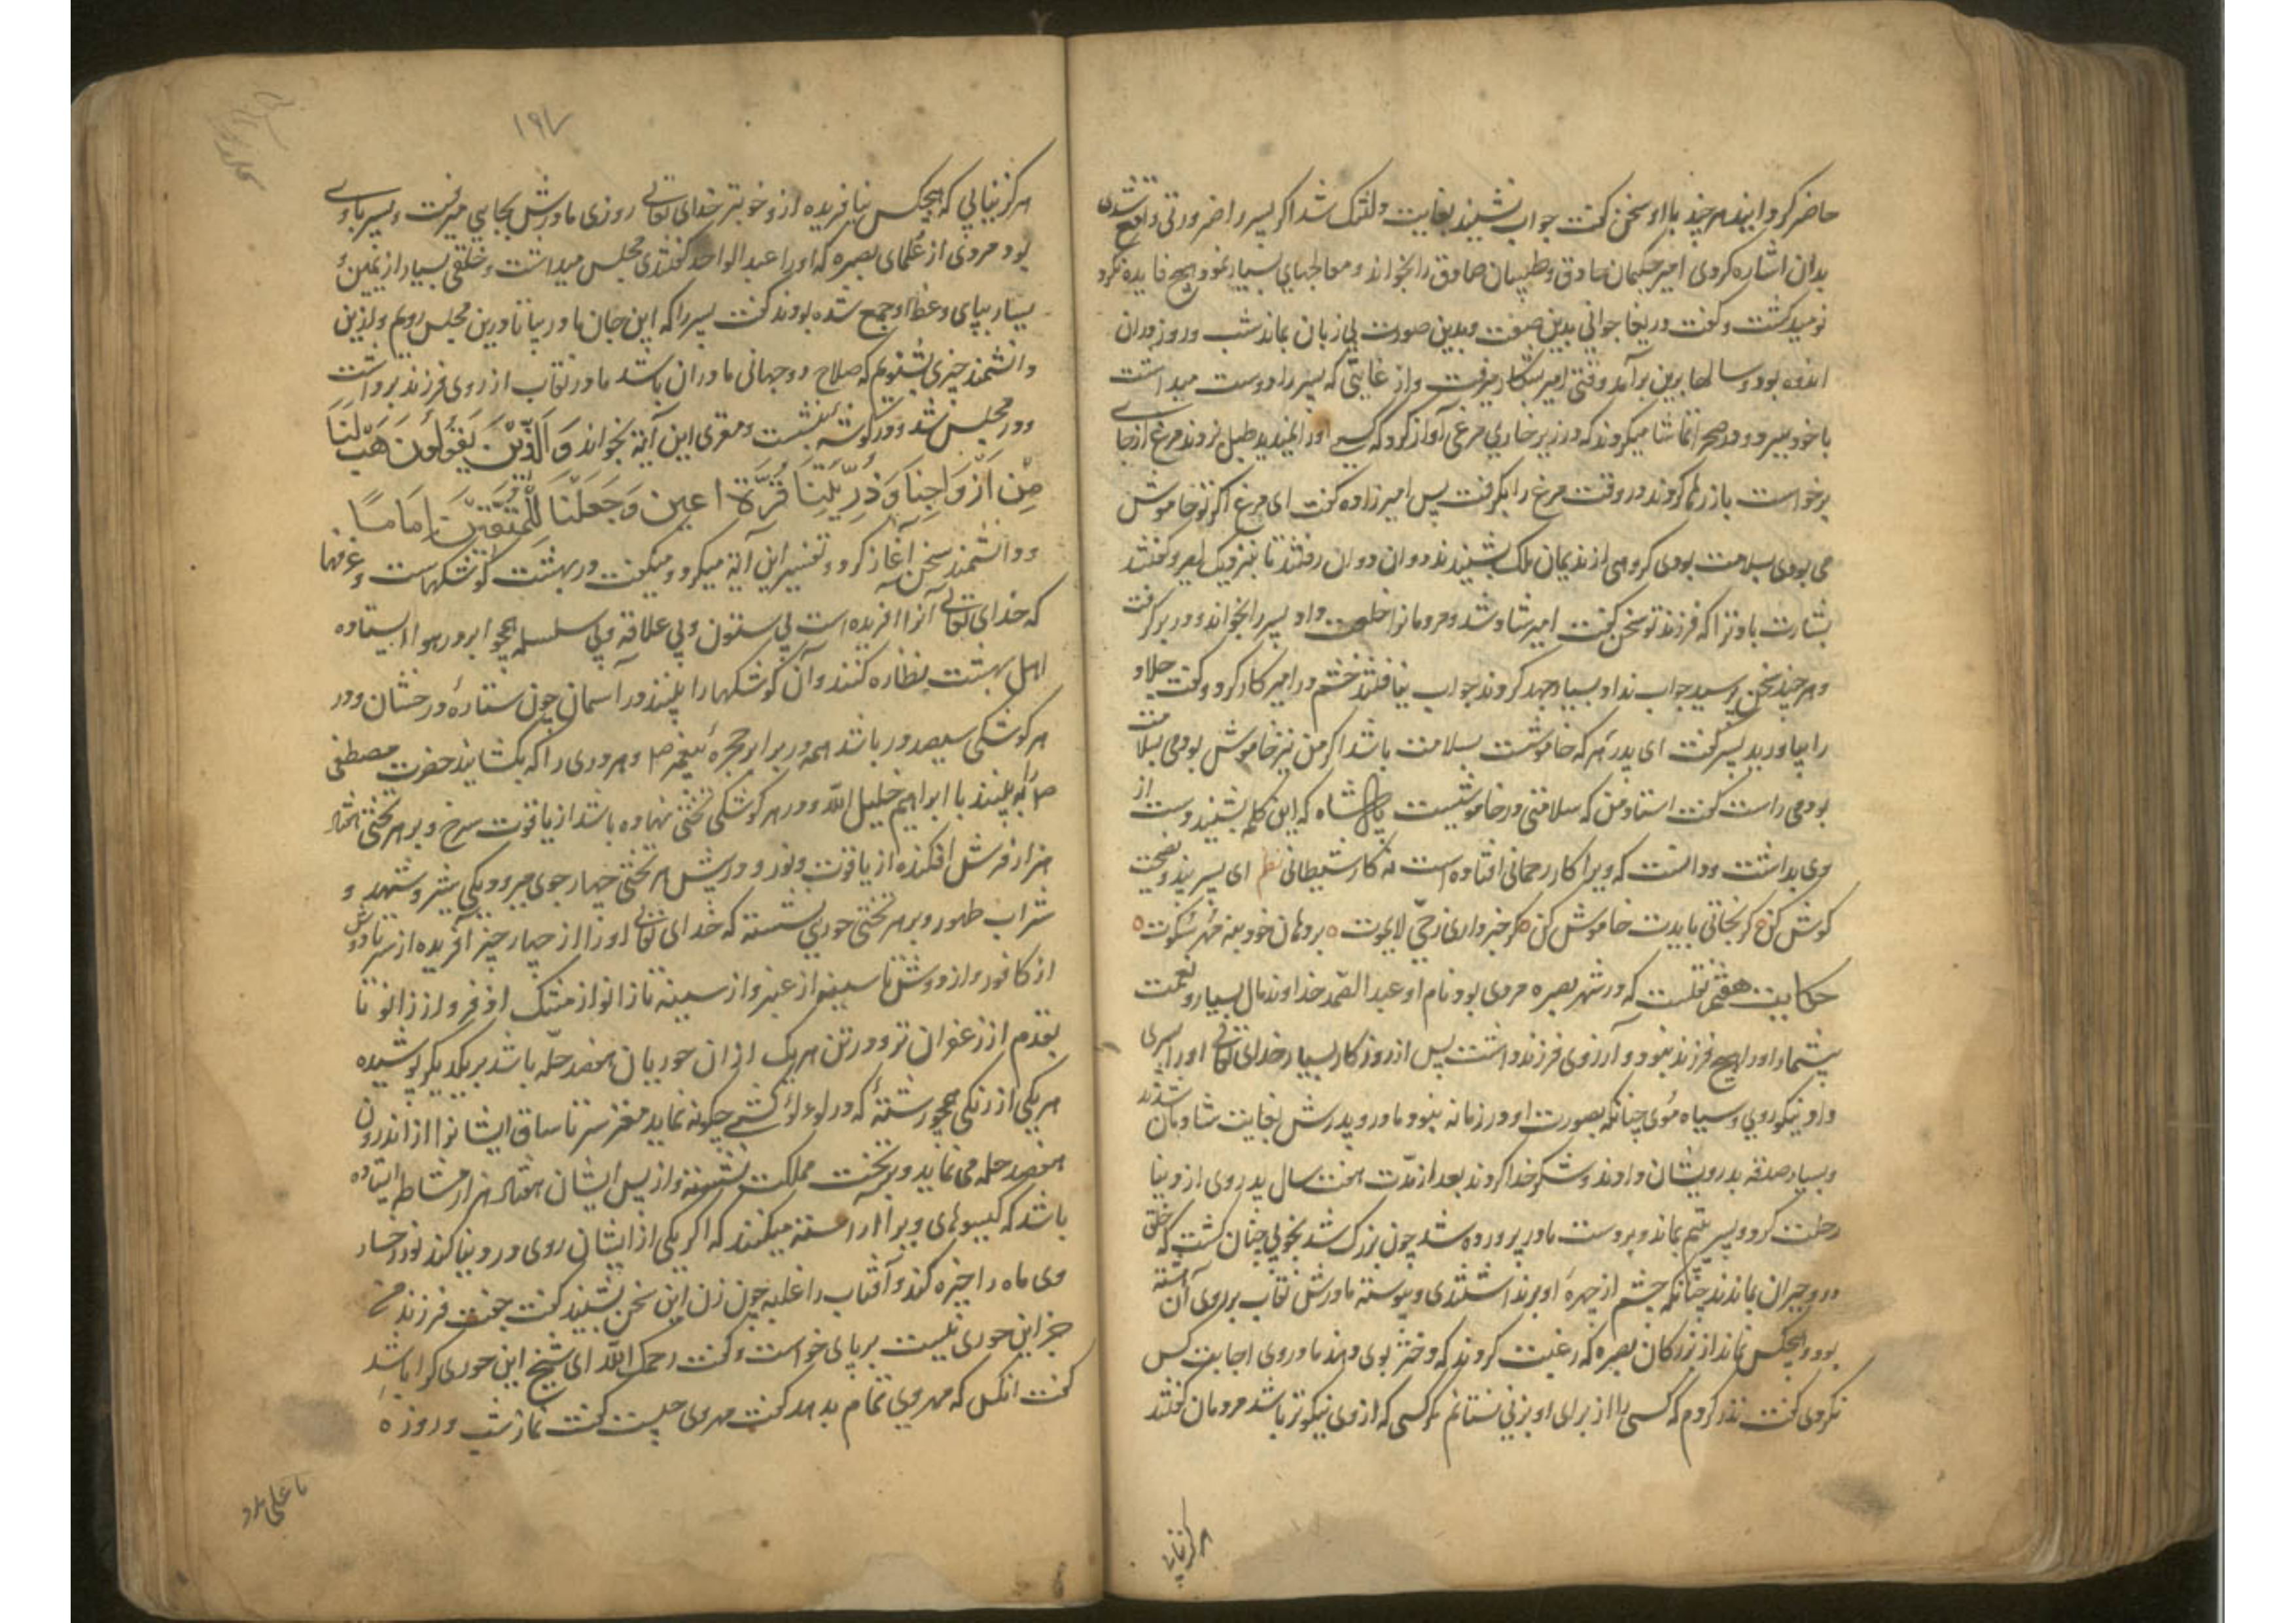 حاضر کردانید هر چند با او سخن گفت جواب نشنید بغایت دلتنک شد اکر پسر را ضرورتی واقع شدی
بدان اشاره کردی امیر حکیمان حاذق و طبیبان صادق را بخواند و معالجهای بسیار نمود هیچ فایده نکرد
نومید کشت و گفت دریغا جوانی بدین صفت و بدین صورت بی زبان بماند شب و روز در ان
اندوه بود و سالها برین برآمد وقتی امیر بشکار میرفت و از غایتی که پسر را دوست میداشت
با خود ببرد و در صحرا تماشا میکردند که در زیر خاری مرغی آواز کرد که کسی او را نمیدید طبل بزدند مرغ از جای
برخواست باز رها کردند در وقت مرغ را بکرفت پس امیرزاده گفت ای مرغ اکر تو خاموش
می بودی بسلامت بودی کروهی از ندیمان ملک بشنیدند دوان دوان رفتند تا بنزدیک امیر و گفتند
بشارت باد ترا که فرزند تو سخن گفت امیر شاد شد و مردمانرا خلعت داد و پسر را بخواند و در بر کرفت
و هر چند سخن پرسید جواب نداد بسیار جهد کردند جواب نیافتند خشم در امیر کار کرد و گفت جلاد
را بیاورید پسر گفت ای پدر هر که خاموشست بسلامت باشد اکر من نیز خاموش بودمی بسلامت
بودمی راست گفت استاد من که سلامتی در خاموشیست پادشاه که این کلمه بشنید دست از
وی بداشت و دانست که ویرا کار رحمانی افتاده است نه کار شیطانی نظم ای پسر پند و نصیحت
کوش کن کر نجاتی بایدت خاموش کن کر خبر داری ز حی لایموت بر دهان خود بنه مهر سکوت
حکایت هفتم نقلست که در شهر بصره مردی بود نام او عبد الصمد خداوند مال بسیار و نعمت
بیشمار او را هیچ فرزند نبود و آرزوی فرزند داشت پس از روزکار بسیار خدای تعالی او را پسری
داد نیکوروی و سیاه موی چنانکه بصورت او در زمانه نبود مادر و پدرش بغایت شادمان شدند
و بسیار صدقه بدرویشان دادند و شکر خدا کردند بعد از مدت هفت سال پدر وی از دنیا
رحلت کرد و پسر یتیم بماند و بر دست مادر پرورده شد چون بزرک شد بخوبی چنان کشت که خلق
در و حیران بماندند چنانکه چشم از چهره او برنداشتندی و پیوسته مادرش نقاب بر روی آن بسته
بود و هیچکس نماند از بزرکان بصره که رغبت کردند که دختر بوی دهند مادر وی اجابت کس
نکردی گفت نذر کردم که کسی را از برای او بزنی نستانم مکر کسی که از وی نیکوتر باشد مردمان گفتند
هرکز نیابی
١٩٧
هرکز نیابی که هیچکس نیافریده از و خوبتر خدای تعالی روزی مادرش بجایی میرفت و پسر با وی
بود مردی از علمای بصره که او را عبد الواحد گفتندی مجلس میداشت و خلقی بسیار از یمین و
یسار بپای وعظ او جمع شده بودند گفت پسر را که این جان مادر بیا تا درین مجلس رویم و ازین
دانشمند چیزی بشنویم که صلاح دو جهانی ما در ان باشد مادر نقاب از روی فرزند برداشت
و در مجلس شد و در کوشه بنشست و مقری این آیة بخواند وَالَّذِینَ یَقُولُونَ هَبْ لَنَا
مِنْ اَزْوَاجِنَا وَذُرِّیَّتِنَا قُرَّةَ اعین وَجَعَلْنَا لِلْمُتَّقِینَ اِمَامًا
و دانشمند سخن آغاز کرد و تفسیر این آیة میکرد و میکفت در بهشت کوشکهاست و غرفها
که خدای تعالی آنرا افریده است بی ستون و بی علاقه و بی سلسله همچو ابر در هوا ایستاده
اهل بهشت نظاره کنند و آن کوشکها را بینند در آسمان چون ستاره درخشان و در
هر کوشکی سیصد در باشد همه در برابر حجره پیغمبر ص و هر دری را که بکشایند حضرت مصطفی
ص را به بینند با ابراهیم خلیل الله و در هر کوشکی تختی نهاده باشد از یاقوت سرخ و بر هر تختی هفتاد
هزار فرش افکنده از یاقوت و نور و در پیش هر تختی چهار جوی میرود یکی شیر و شهد و
شراب طهور و بر هر تختی حوری نشسته که خدای تعالی او را از چهار چیز آفریده از سر تا دوش
از کافور و از دوش تا سینه از عنبر و از سینه تا زانو از مشک اذفر و از زانو تا
بقدم از زعفران تر و در تن هر یک از ان حوریان هفصد حله باشد بر یکدیکر پوشیده
هر یکی از رنکی همچو رشته که در لولو کشی چکونه نماید مغز سر تا ساق ایشانرا از اندرون
هفصد حله می نماید و بر تخت مملکت نشسته و از پس ایشان هفتاد هزار مشاطه ایستاده
باشد که کیسوهای ویرا آراسته میکنند که اکر یکی از ایشان روی در دنیا کند نور رخسار
وی ماه را خیره کند و آفتاب را غلبه چون زن این سخن بشنید گفت جفت فرزند من
جز این حوری نیست بر پای خواست و گفت رحمک الله ای شیخ این حوری کرا باشد
گفت انکس که مهر وی تمام بدهد گفت مهر وی چیست گفت نماز شب و روزه
یا علی مدد